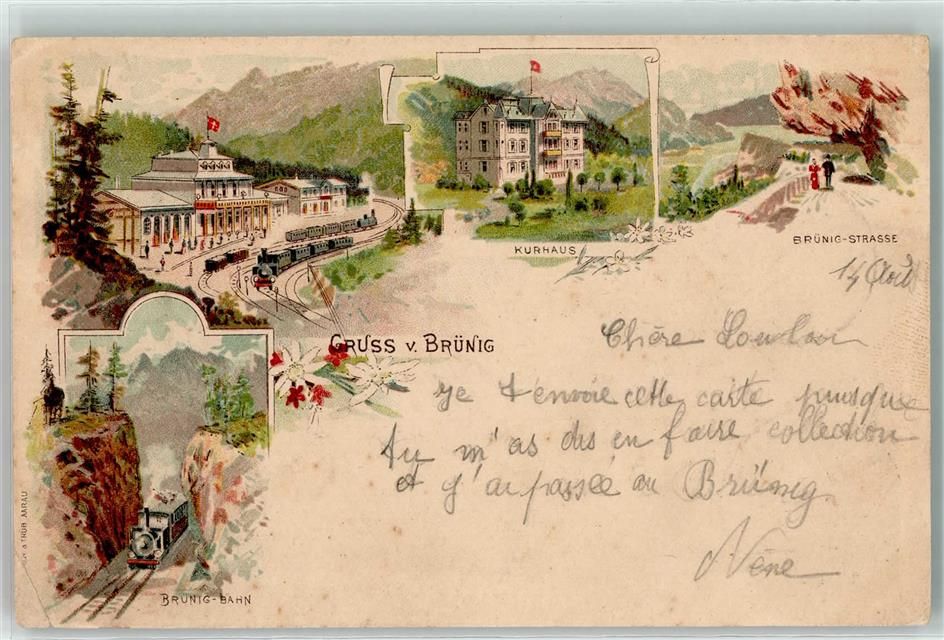 KURHAUS
BRÜNIG-STRASSE
14 Août
GRUSS V. BRÜNIG
Chère Loulou
je t'envoie cette carte puisque
tu m'as dis en faire collection
et j'ai passée au Brünig.
Nène
TRÜB AARAU
BRÜNIG-BAHN